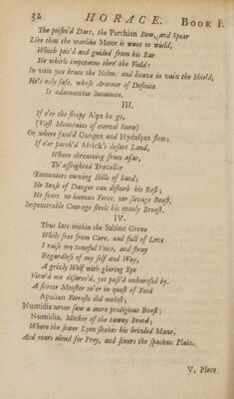 32 HORACE. BOOK I.
The poison'd Dart, the Parthian Bow, and Spear
Like that the warlike Moor is wont to wield,
Which pois'd and guided from his Ear
He whirls impetuous thro' the Field:
In vain you brace the Helm, and heave in vain the Shield,
He's only safe, whose Armour of Defence
Is adamantine Innocence.
III.
If o'er the steepy Alps he go,
(Vast Mountains of eternal Snow)
Or where fam'd Ganges and Hydaspes flow;
If o'er parch'd Africk's desart Land,
Where threatning from afar,
Th' affrighted Traveller
Encounters moving Hills of Sand;
No Sense of Danger can disturb his Rest;
He fears no human Force, nor savage Beast,
Impenetrable Courage steels his manly Breast.
IV.
Thus late within the Sabine Grove
While free from Care, and full of Love
I raise my tuneful Voice, and stray
Regardless of my self and Way,
A grizly Wolf with glaring Eye
View'd me disarm'd, yet pass'd unhurt by.
A fiercer Monster ne'er in quest of Food
Apulian Forrests did molest;
Numidia never saw a more prodigious Beast;
Numidia, Mother of the tawny Brood;
Where the stern Lyon shakes his brinded Mane,
And roars aloud for Prey, and scours the spacious Plain.
V. Place